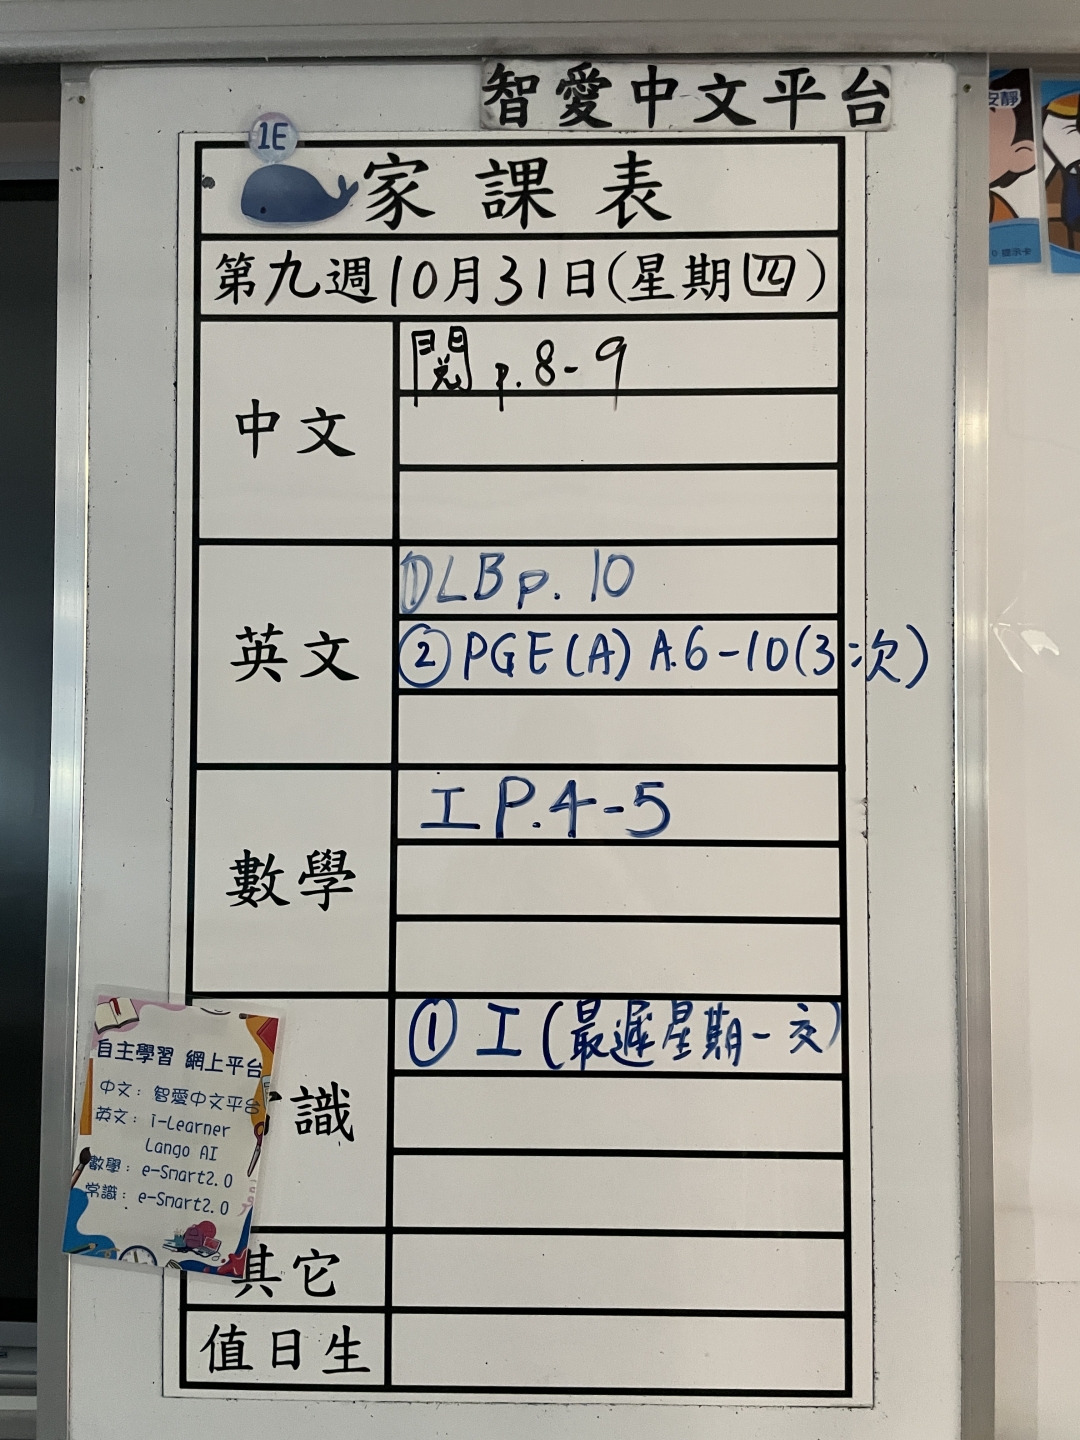 智愛中文平台
安靜
1E
家課表
第九週10月31日(星期四)
中文
閱 p. 8-9
英文
①LB p. 10
②PGE(A) A.6-10(3次)
數學
工 P.4-5
識
①工(最遲星期一交)
自主學習 網上平台
中文: 智愛中文平台
英文: i-Learner
Lango AI
數學: e-Smart2.0
常識: e-Smart2.0
其它
值日生